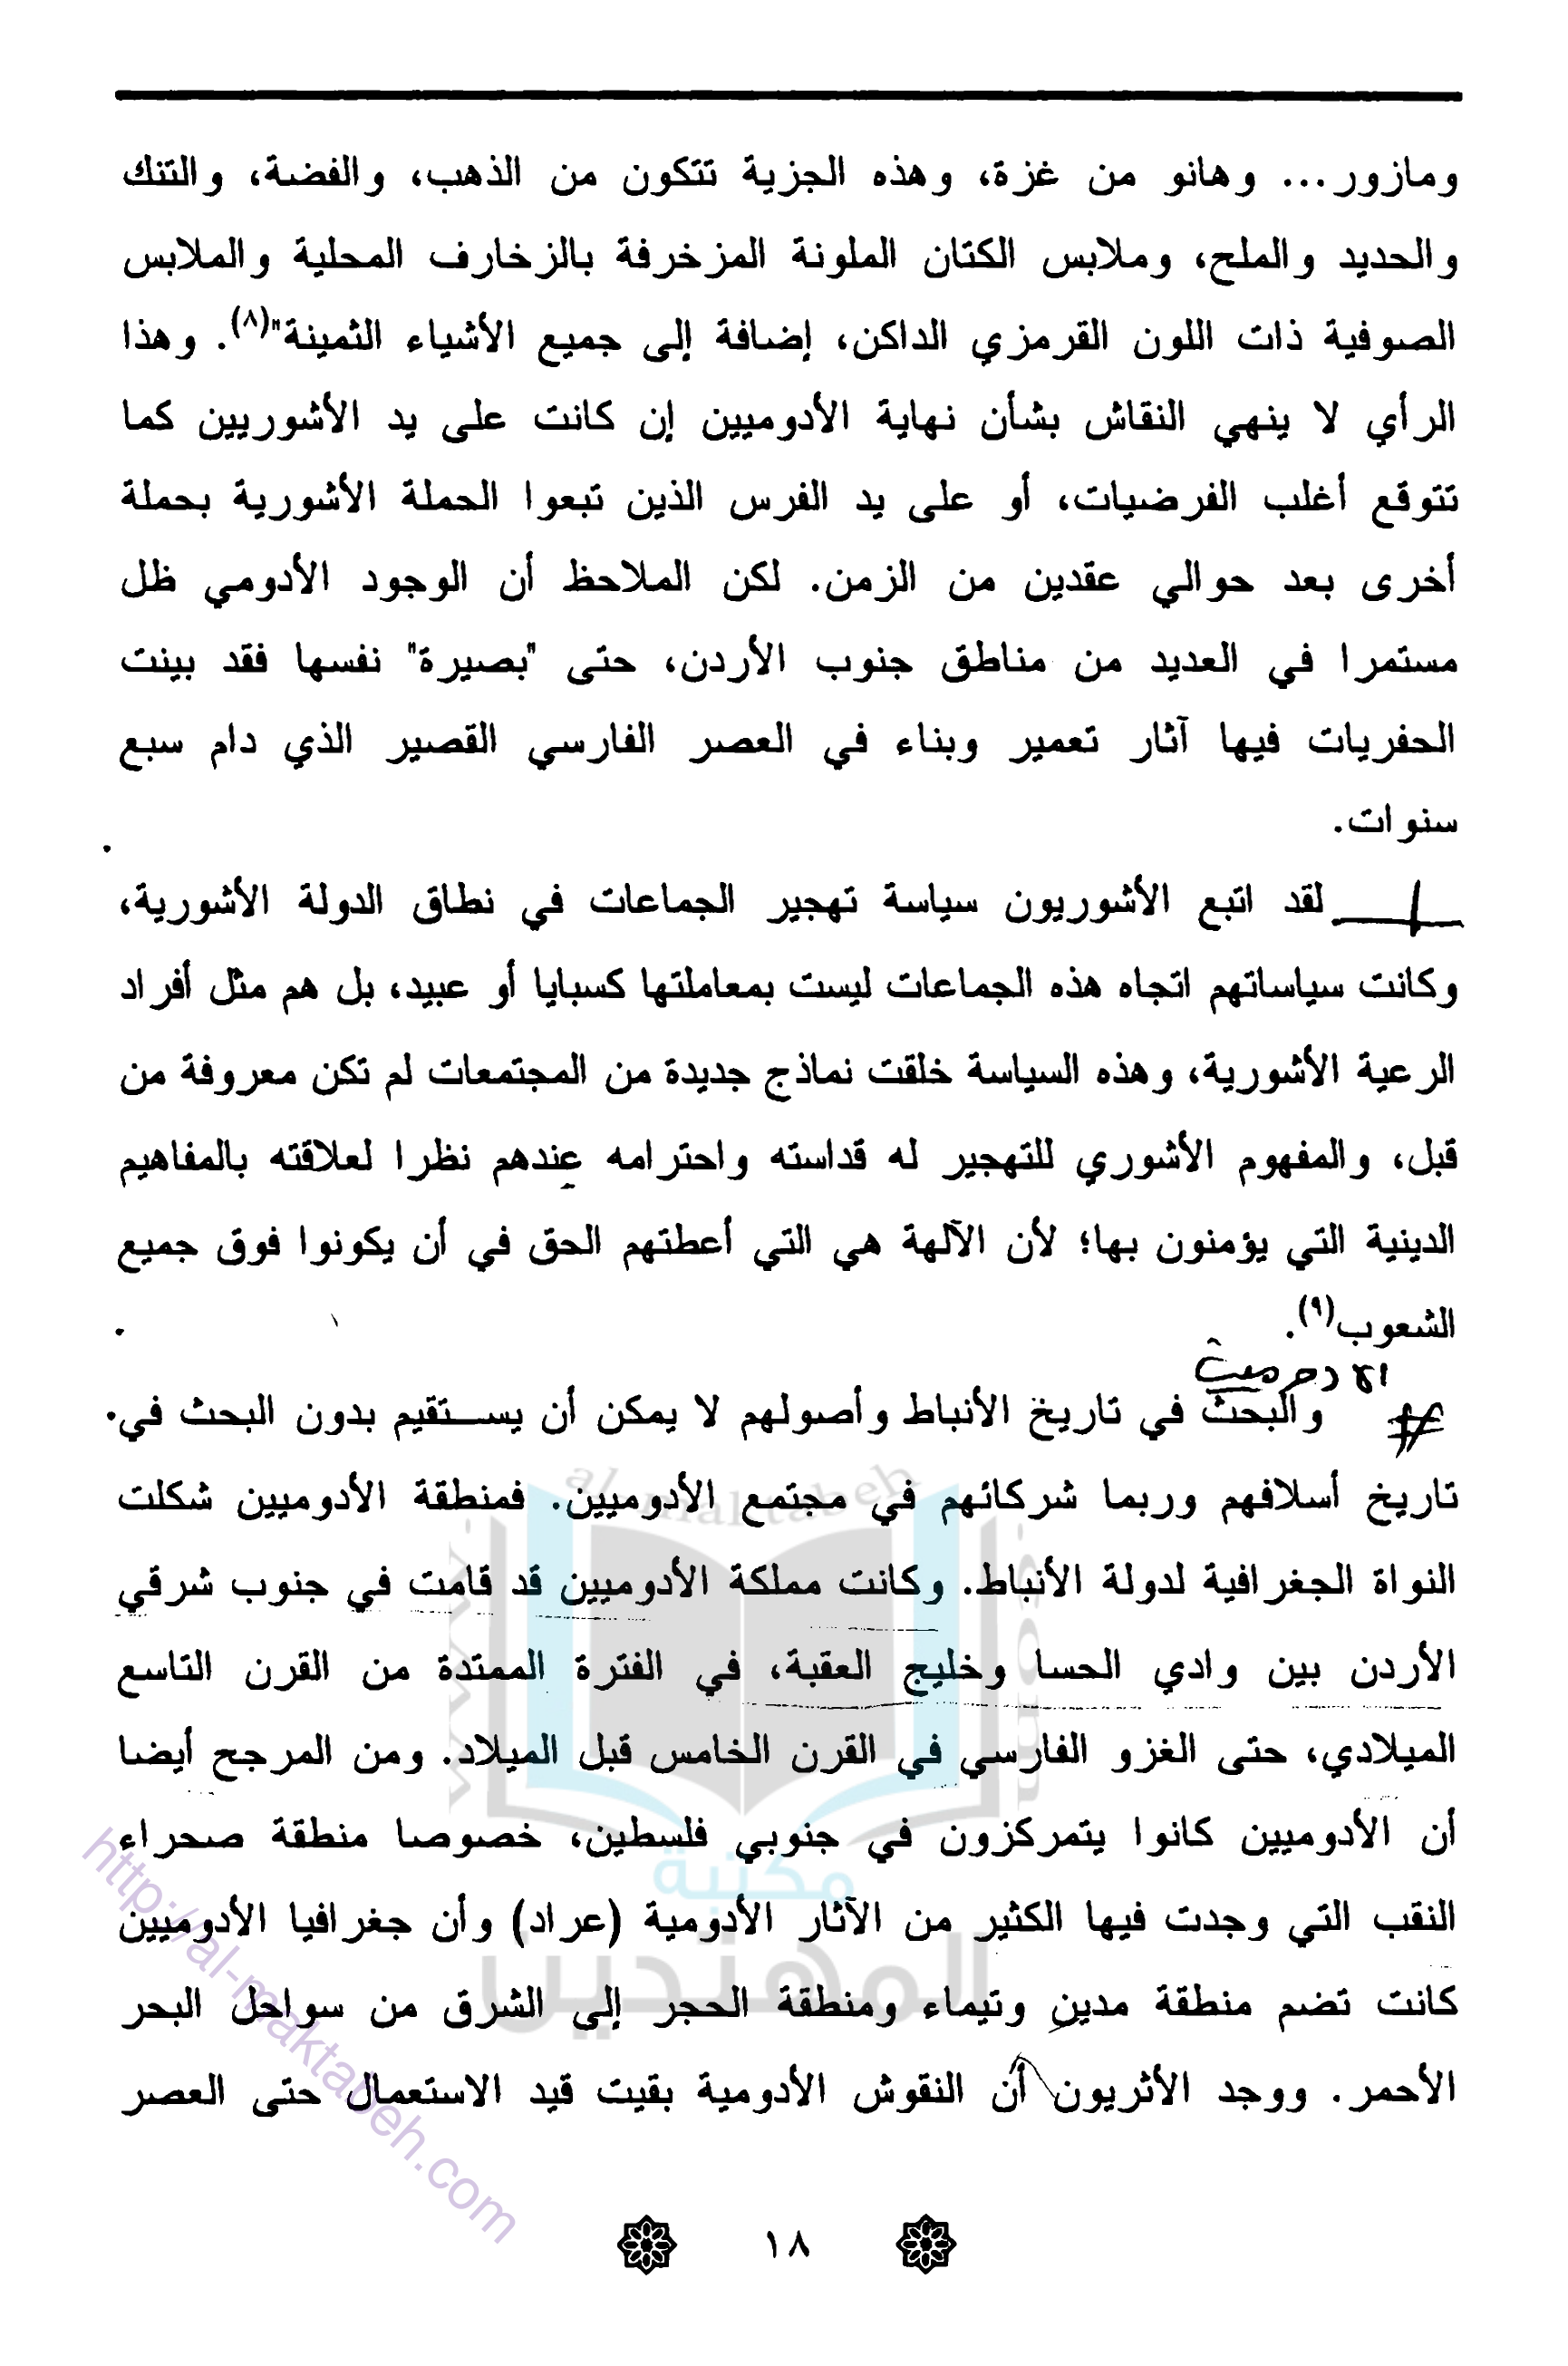 ومازور... وهانو من غزة، وهذه الجزية تتكون من الذهب، والفضة، والتنك
والحديد والملح، وملابس الكتان الملونة المزخرفة بالزخارف المحلية والملابس
الصوفية ذات اللون القرمزي الداكن، إضافة إلى جميع الأشياء الثمينة"(٨). وهذا
الرأي لا ينهي النقاش بشأن نهاية الأدوميين إن كانت على يد الأشوريين كما
تتوقع أغلب الفرضيات، أو على يد الفرس الذين تبعوا الحملة الأشورية بحملة
أخرى بعد حوالي عقدين من الزمن. لكن الملاحظ أن الوجود الأدومي ظل
مستمرا في العديد من مناطق جنوب الأردن، حتى "بصيرة" نفسها فقد بينت
الحفريات فيها آثار تعمير وبناء في العصر الفارسي القصير الذي دام سبع
سنوات.
لقد اتبع الأشوريون سياسة تهجير الجماعات في نطاق الدولة الأشورية،
وكانت سياساتهم اتجاه هذه الجماعات ليست بمعاملتها كسبايا أو عبيد، بل هم مثل أفراد
الرعية الأشورية، وهذه السياسة خلقت نماذج جديدة من المجتمعات لم تكن معروفة من
قبل، والمفهوم الأشوري للتهجير له قداسته واحترامه عندهم نظرا لعلاقته بالمفاهيم
الدينية التي يؤمنون بها؛ لأن الآلهة هي التي أعطتهم الحق في أن يكونوا فوق جميع
الشعوب(٩).
# والبحث في تاريخ الأنباط وأصولهم لا يمكن أن يستقيم بدون البحث في
تاريخ أسلافهم وربما شركائهم في مجتمع الأدوميين. فمنطقة الأدوميين شكلت
النواة الجغرافية لدولة الأنباط. وكانت مملكة الأدوميين قد قامت في جنوب شرقي
الأردن بين وادي الحسا وخليج العقبة، في الفترة الممتدة من القرن التاسع
الميلادي، حتى الغزو الفارسي في القرن الخامس قبل الميلاد. ومن المرجح أيضا
أن الأدوميين كانوا يتمركزون في جنوبي فلسطين، خصوصا منطقة صحراء
النقب التي وجدت فيها الكثير من الآثار الأدومية (عراد) وأن جغرافيا الأدوميين
كانت تضم منطقة مدين وتيماء ومنطقة الحجر إلى الشرق من سواحل البحر
الأحمر. ووجد الأثريون أن النقوش الأدومية بقيت قيد الاستعمال حتى العصر
١٨
al-maktabeh
مكتبة
المهتدين
http://al-maktabeh.com